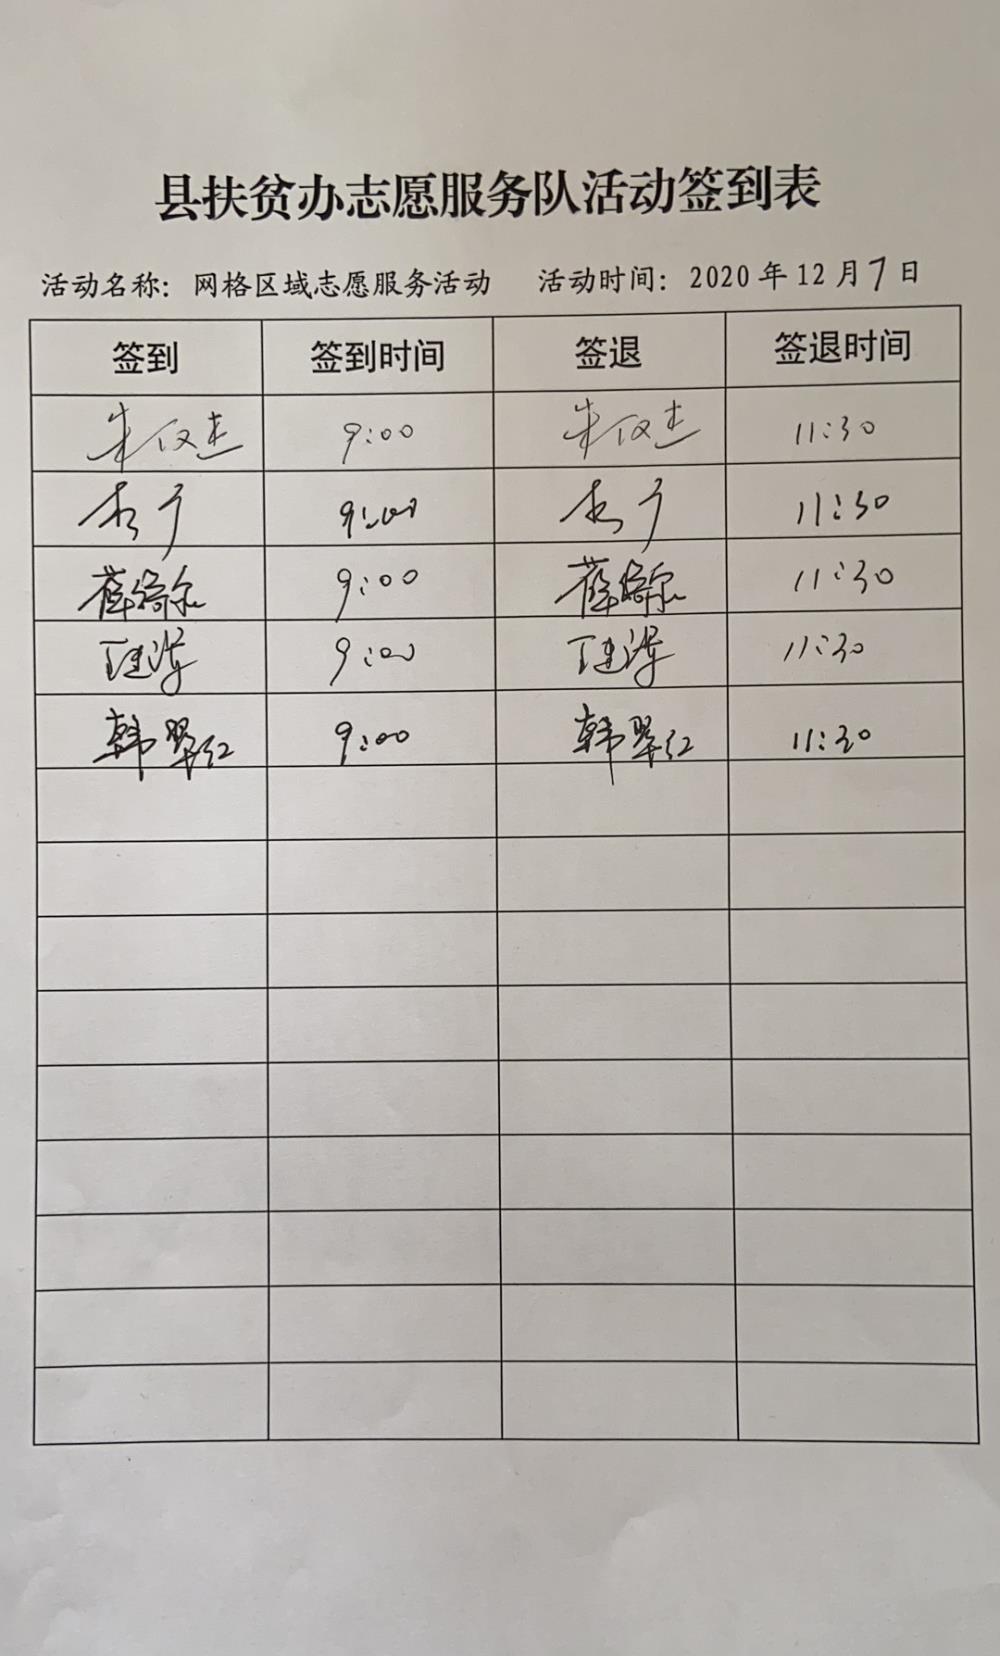 县扶贫办志愿服务队活动签到表
活动名称：网格区域志愿服务活动 活动时间：2020年12月7日
签到 签到时间 签退 签退时间
9:00 11:30
9:00 11:30
9:00 11:30
9:00 11:30
韩翠红 9:00 韩翠红 11:30